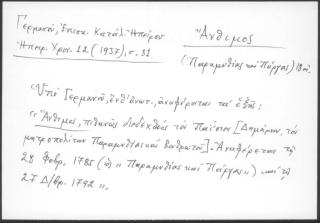 Γερμανοῦ, Ἐπισκ. Κατάλ. Ἠπείρου
Ἠπειρ. Χρον. 12 (1937), σ. 31
Ἄνθιμος
(Παραμυθίας καὶ Πάργας) 18 αἰ.
Ὑπὸ Γερμανοῦ, ἀναφέρεται τὰ ἑξῆς:
« Ἄνθιμος, πιθανῶς διαδεχθεὶς τὸν Παΐσιον [
μητροπολίτην Παραμυθίας καὶ Βουθρωτοῦ]. Ἀναφέρεται τῇ
28 Φεβρ. 1785 (ὡς « Παραμυθίας καὶ Πάργας ») καὶ τῇ
27 Δ/βρ. 1792 »,